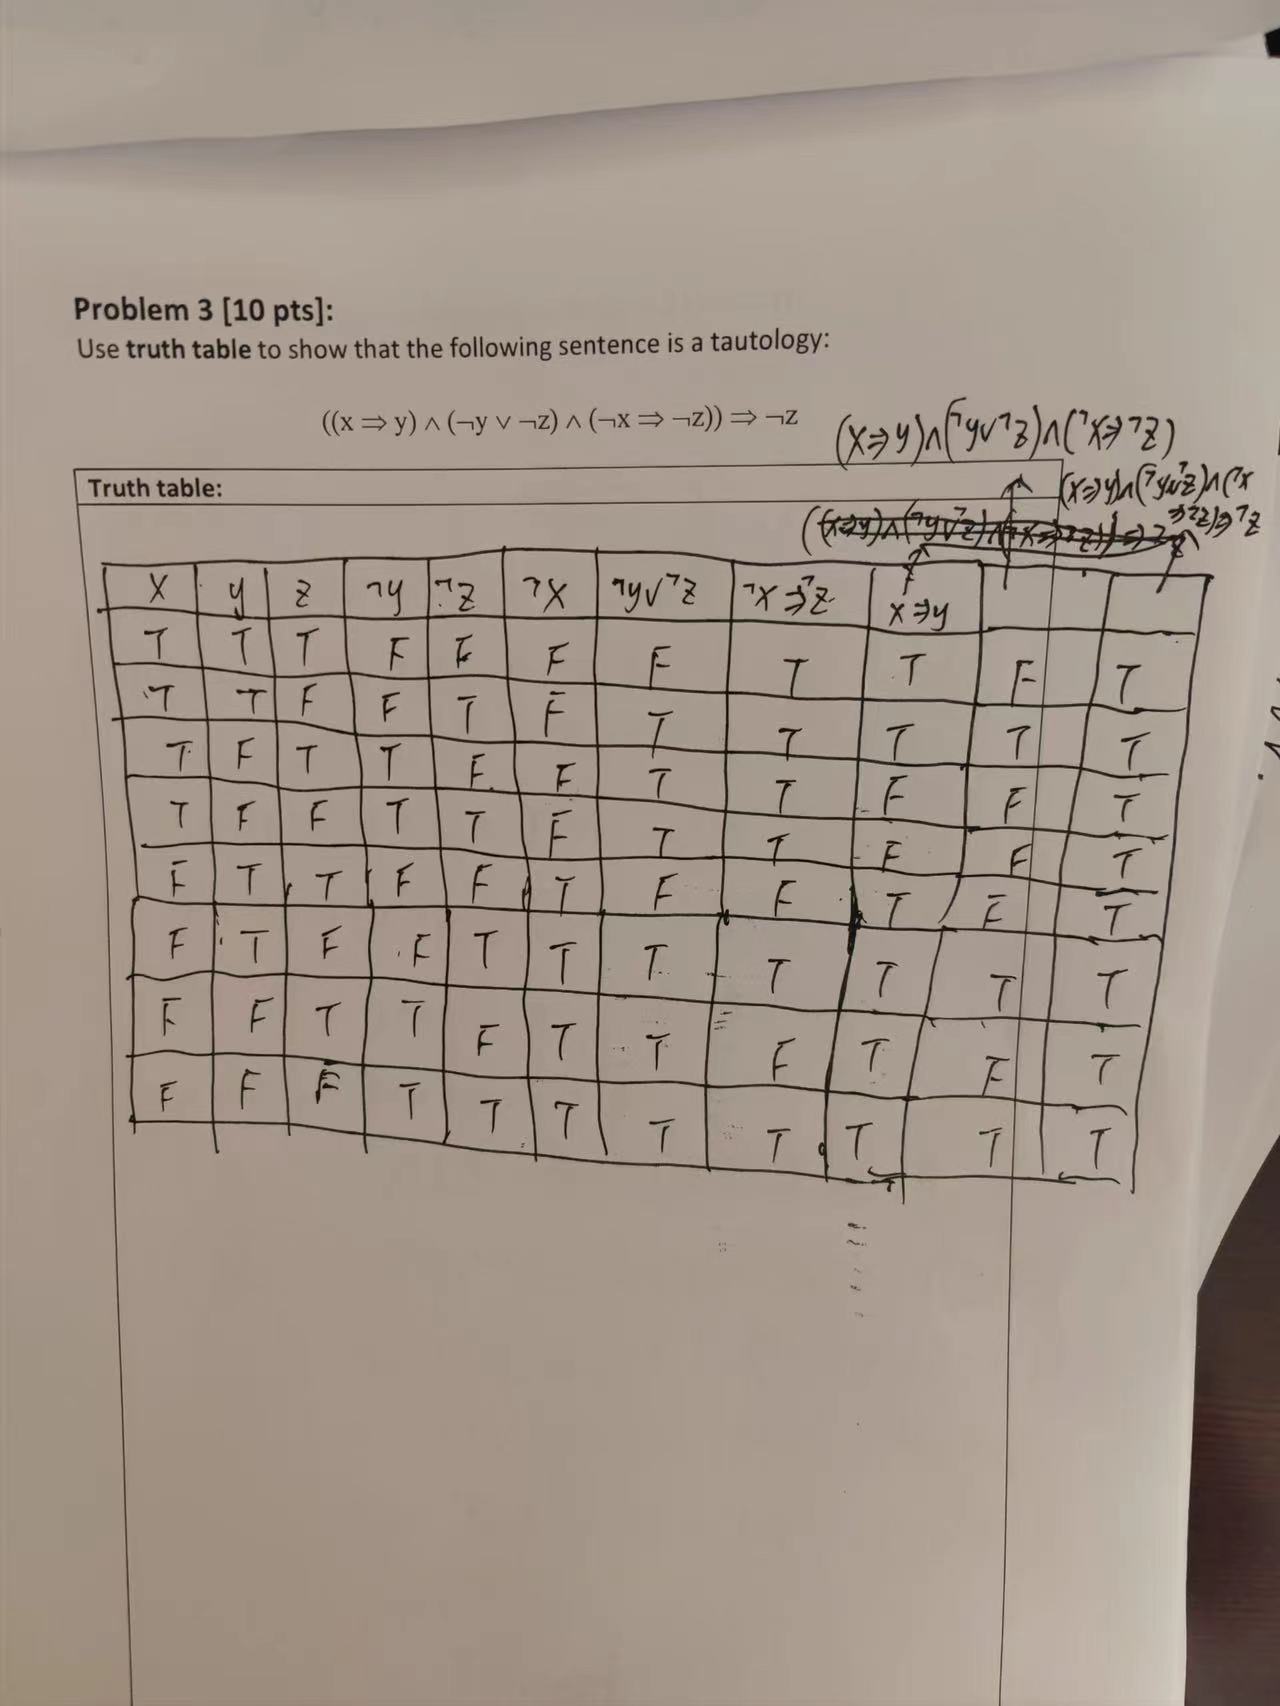 Problem 3 [10 pts]:
Use truth table to show that the following sentence is a tautology:
((x ⇒ y) ∧ (¬y ∨ ¬z) ∧ (¬x ⇒ ¬z)) ⇒ ¬z
(x⇒y)∧(¬y∨¬z)∧(¬x⇒¬z)
Truth table:
(x⇒y)∧(¬y∨¬z)∧(¬x
⇒¬z)⇒¬z
x y z ¬y ¬z ¬x ¬y∨¬z ¬x⇒¬z x⇒y
T T T F F F F T T F T
T T F F T F T T T T T
T F T T F F T T F F T
T F F T T F T T F F T
F T T F F T F F T F T
F T F F T T T T T T T
F F T T F T T F T F T
F F F T T T T T T T T